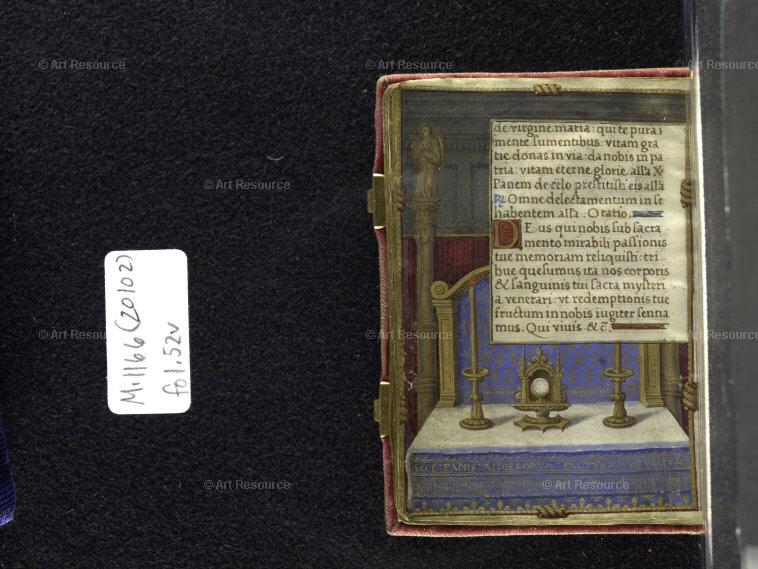 M.1166 (20102)
fol. 52v
de virgine maria : qui te pura
mente sumentibus : vitam gra
tie donas in via : da nobis in pa
tria : vitam eterne glorie. alla
Panem de celo prestitisti eis alla
Omne delectamentum in se
habentem alla. Oratio.
DEus qui nobis sub sacra
mento mirabili passionis
tue memoriam reliquisti : tri
bue quesumus ita nos corporis
& sanguinis tui sacra mysteri
a venerari : vt redemptionis tue
fructum in nobis iugiter sentia
mus. Qui viuis &c̄.
ECCE : PANIS : ANGELORVM : FACTVS : CIBVS VIATOR
© Art Resource
© Art Resource
© Art Resource
© Art Resource
© Art Resource
© Art Resource
© Art Resource
© Art Resource
© Art Resource
© Art Resource